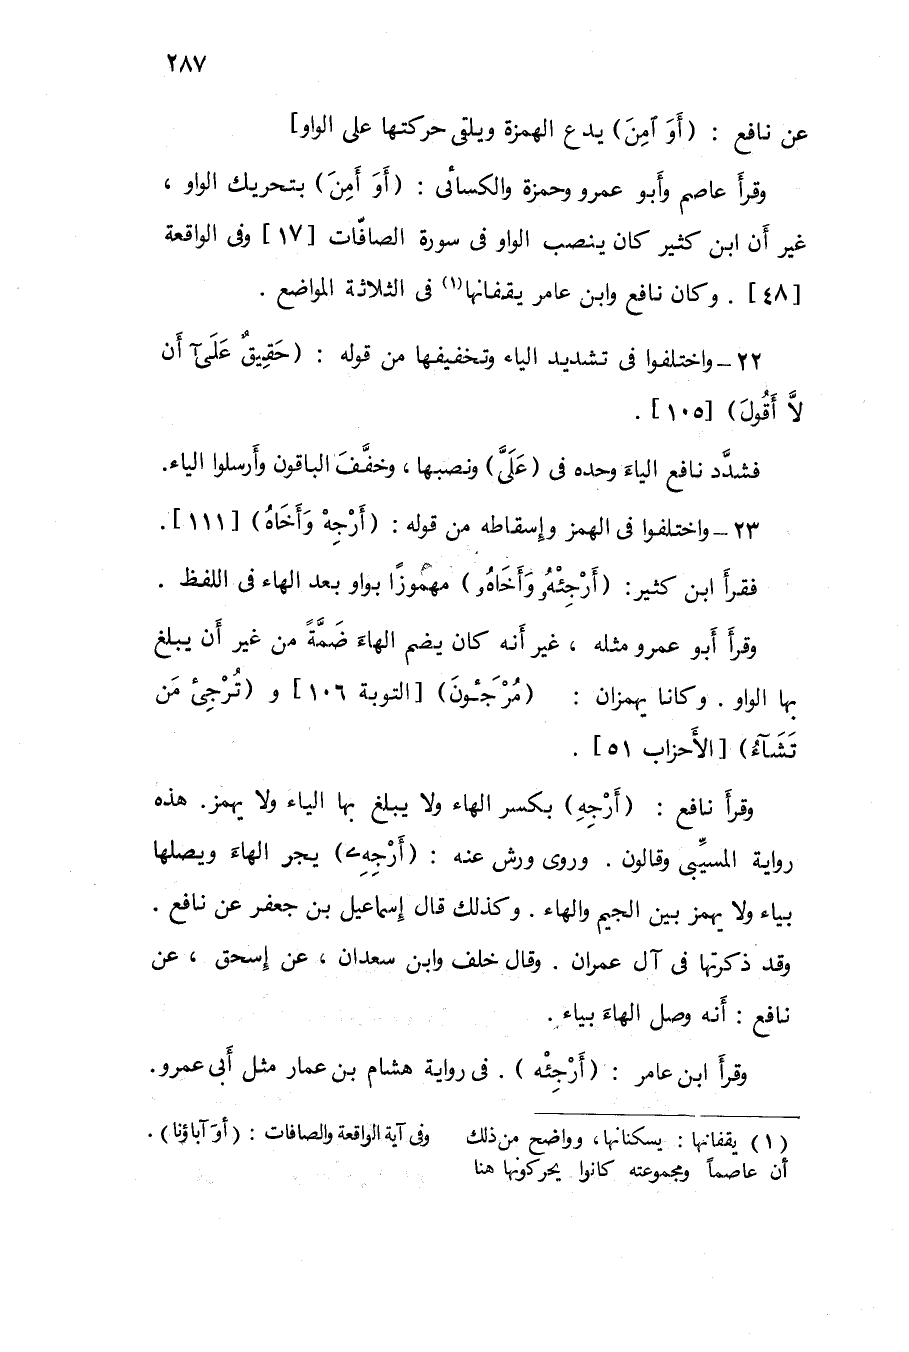 ٢٨٧
عن نافع : (أَوَ آمِنَ) يدع الهمزة ويلقى حركتها على الواو]
وقرأَ عاصم وأَبو عمرو وحمزة والكسائى : (أَوَ أَمِنَ) بتحريك الواو ،
غير أَن ابن كثير كان ينصب الواو فى سورة الصافَّات [١٧] وفى الواقعة
[٤٨] . وكان نافع وابن عامر يقفانها(١) فى الثلاثة المواضع .
٢٢ – واختلفوا فى تشديد الياء وتخفيفها من قوله : (حَقِيقٌ عَلَىٓ أَن
لاَّ أَقُولَ) [١٠٥] .
فشدَّد نافع الياءَ وحده فى (عَلَىَّ) ونصبها ، وخفَّفَ الباقون وأَرسلوا الياء.
٢٣ – واختلفوا فى الهمز وإسقاطه من قوله : (أَرْجِهْ وَأَخَاهُ) [١١١] .
فقرأَ ابن كثير: (أَرْجِئْهُۥ وَأَخَاهُۥ) مهموزًا بواو بعد الهاء فى اللفظ .
وقرأَ أَبو عمرو مثله ، غير أَنه كان يضم الهاءَ ضَمَّةً من غير أَن يبلغ
بها الواو . وكانا يهمزان : (مُرْجَـُٔونَ) [التوبة ١٠٦] و (تُرْجِئُ مَن
تَشَآءُ) [الأَحزاب ٥١] .
وقرأَ نافع : (أَرْجِهِ) بكسر الهاء ولا يبلغ بها الياء ولا يهمز. هذه
رواية المسيِّبى وقالون . وروى ورش عنه : (أَرْجِهِے) يجر الهاءَ ويصلها
بياء ولا يهمز بين الجيم والهاء . وكذلك قال إسماعيل بن جعفر عن نافع .
وقد ذكرتها فى آل عمران . وقال خلف وابن سعدان ، عن إسحق ، عن
نافع : أَنه وصل الهاءَ بياء .
وقرأَ ابن عامر : (أَرْجِئْهِ) . فى رواية هشام بن عمار مثل أَبى عمرو.
(١) يقفانها : يسكنانها، وواضح من ذلك
أن عاصماً ومجموعته كانوا يحركونها هنا
وفى آية الواقعة والصافات : (أوَ آباؤنا) .